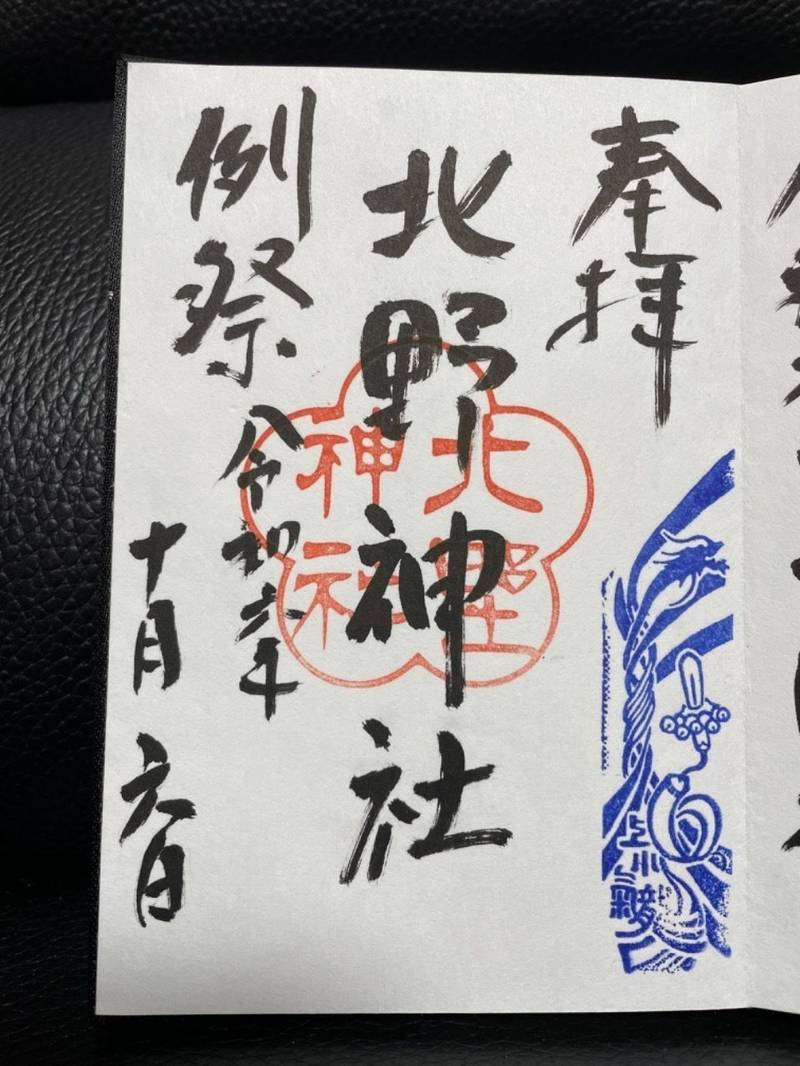 奉拝
北野神社
例祭
令和六年
十月六日
北野
神社
上小